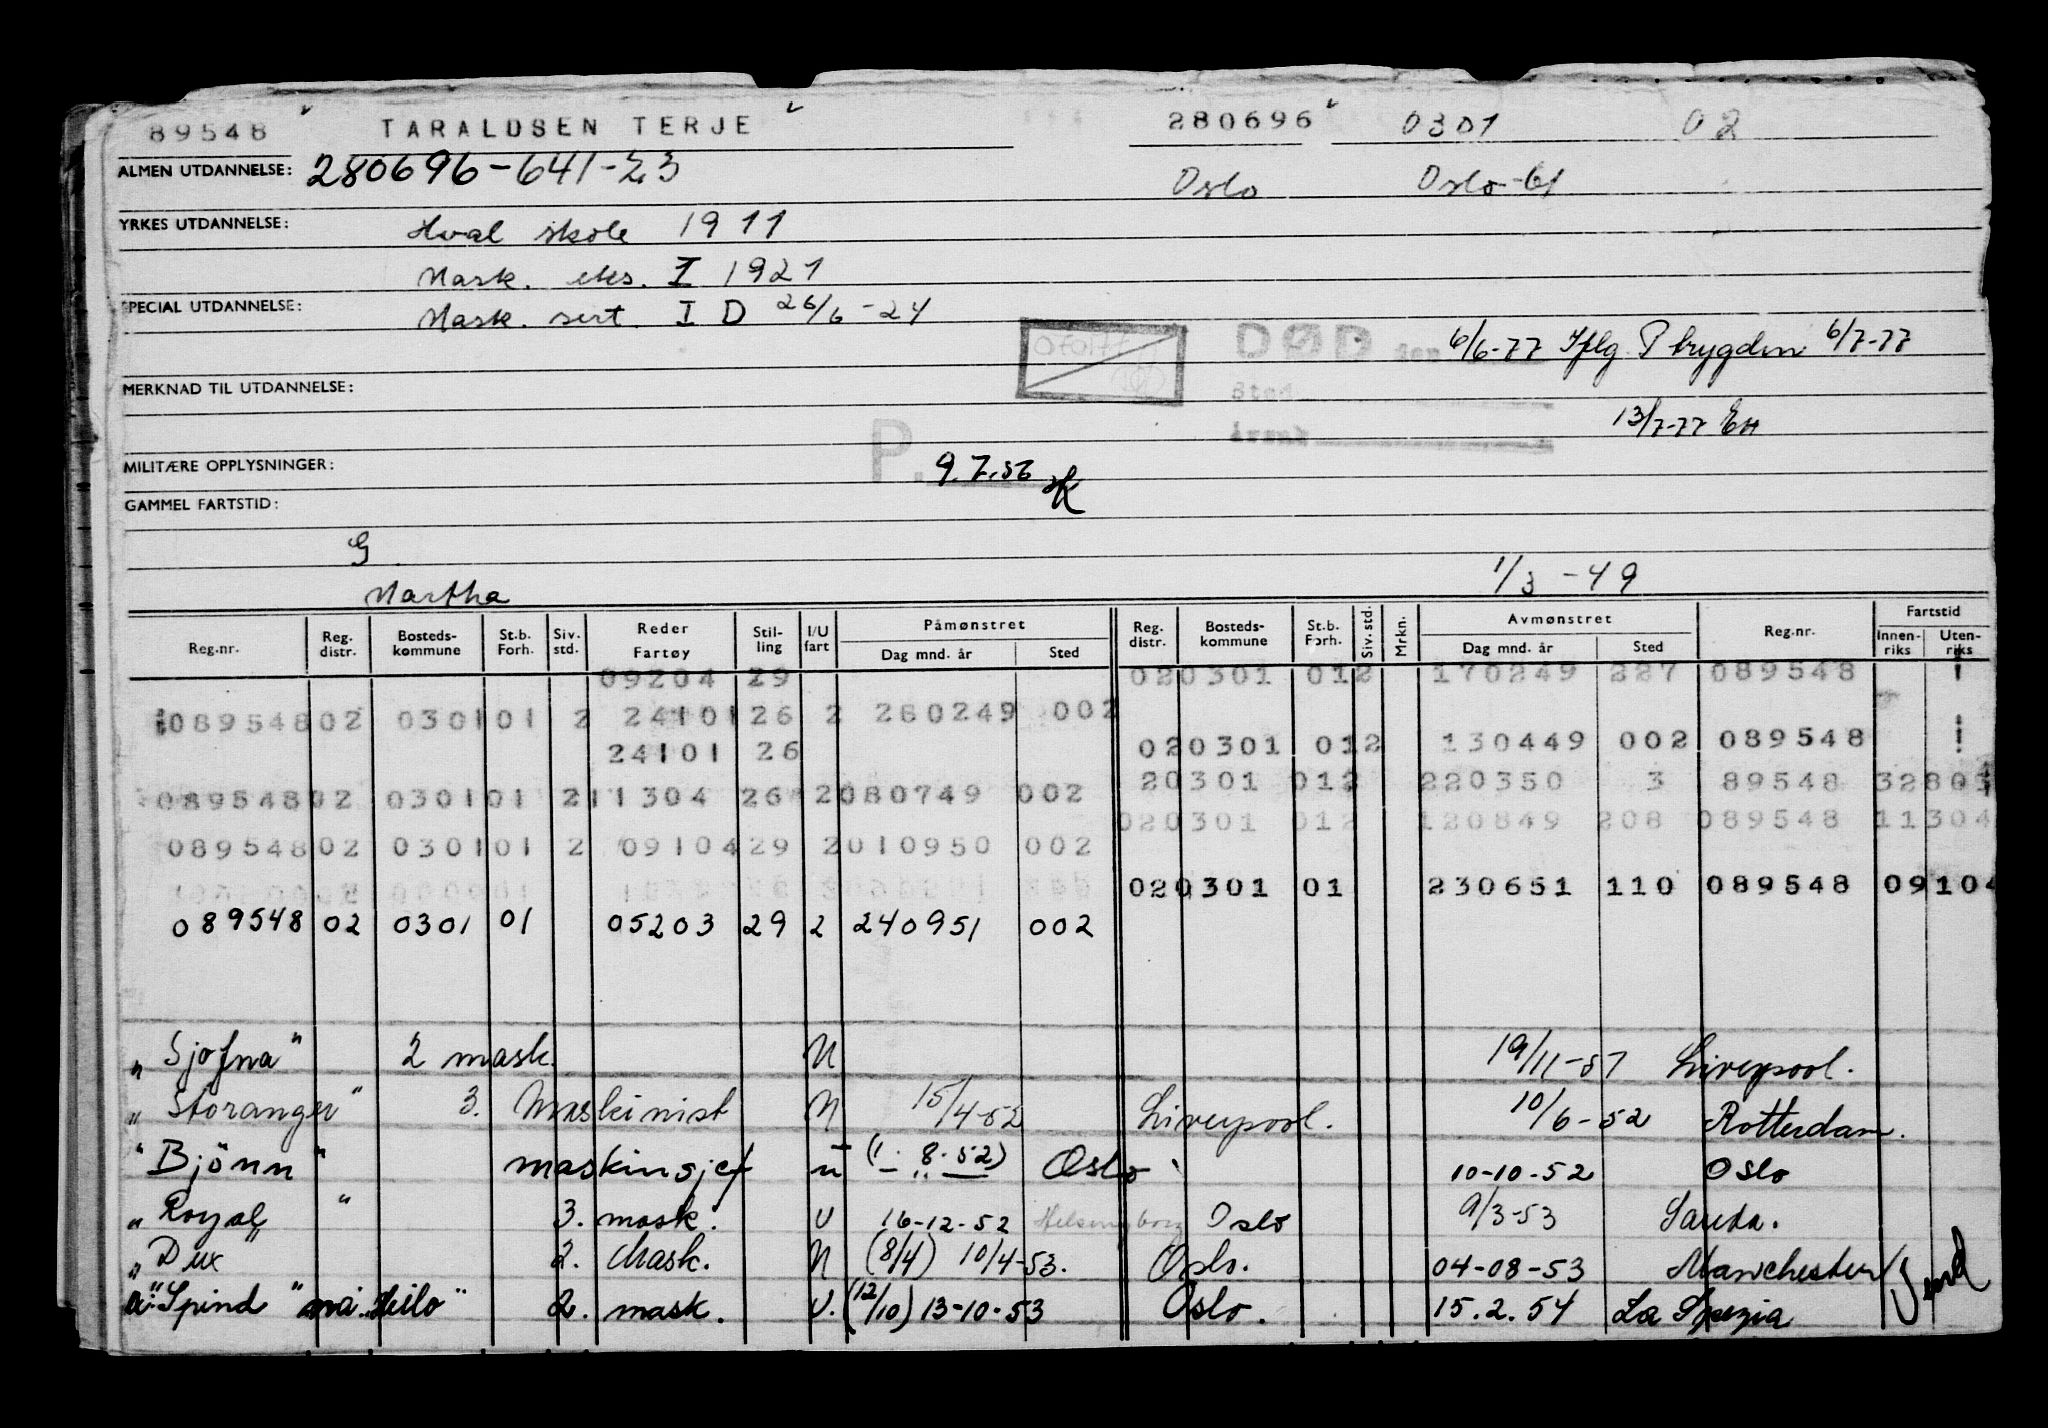 89548 TARALDSEN TERJE 280696 0301 02
ALMEN UTDANNELSE: 280696-641-23 Oslo Oslo-61
YRKES UTDANNELSE: Hval skole 1911
Mask. eks. I 1921
SPECIAL UTDANNELSE: Mask. sert. I D 26/6-24
DØD den 6/6-77 Iflg P trygden 6/7-77
MERKNAD TIL UTDANNELSE: Sted
årsak 13/7-77
MILITÆRE OPPLYSNINGER: P. 9.7.56
GAMMEL FARTSTID:
G
Martha 1/3-49
Reg.nr. Reg. distr. Bosteds-kommune St.b. Forh. Siv. std. Reder Fartøy Stil-ling I/U fart Påmønstret Dag mnd. år Sted Reg. distr. Bosteds-kommune St.b. Forh. Siv. std. Mrkn. Avmønstret Dag mnd. år Sted Reg.nr. Fartstid Innen-riks Uten-riks
09204 29 020301 012 170249 227 089548
08954802 030101 2 24101 26 2 280249 002
24101 26 020301 012 130449 002 089548
20301 012 220350 3 89548
08954802 030101 211304 26 2080749 002
020301 012 120849 208 089548 11304
08954802 030101 2 09104 29 2010950 002
020301 01 230651 110 089548 09104
089548 02 0301 01 05203 29 2 240951 002
"Sjofna" 2 mask. U 19/11-51 Liverpool.
"Storanger" 3. Maskinist U 15/4-52 Liverpool. 10/6-52 Rotterdam.
"Bjönn" maskinsjef u (1.8.52) Oslo 10-10-52 Oslo
"Royal" 3. mask. U 16-12-52 Helsingborg Oslo 9/3-53 Sauda.
"Dux" 2. Mask. U (8/4) 10/4-53. Oslo. 04-08-53 Manchester
"Spind" nå "Heilo" 2. mask. U. (12/10) 13-10-53 Oslo. 15.2.54 La Spezia